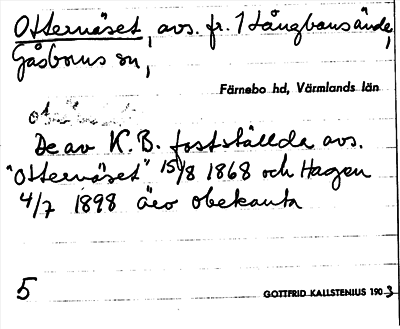 Otternäset, avs. fr. 1 Långbansände,
Gåsborns sn,
Färnebo hd, Värmlands län
De av K. B. fastställda avs.
"Otternäset" 15/8 1868 och Hagen
4/7 1898 äro obekanta
5
GOTTFRID KALLSTENIUS 1903